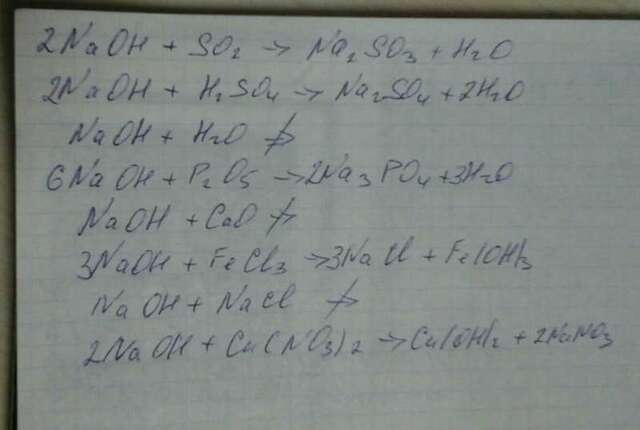 2NaOH + SO₂ → Na₂SO₃ + H₂O
2NaOH + H₂SO₄ → Na₂SO₄ + 2H₂O
NaOH + H₂O ↛
6NaOH + P₂O₅ → 2Na₃PO₄ + 3H₂O
NaOH + CaO ↛
3NaOH + FeCl₃ → 3NaCl + Fe(OH)₃
NaOH + NaCl ↛
2NaOH + Cu(NO₃)₂ → Cu(OH)₂ + 2NaNO₃